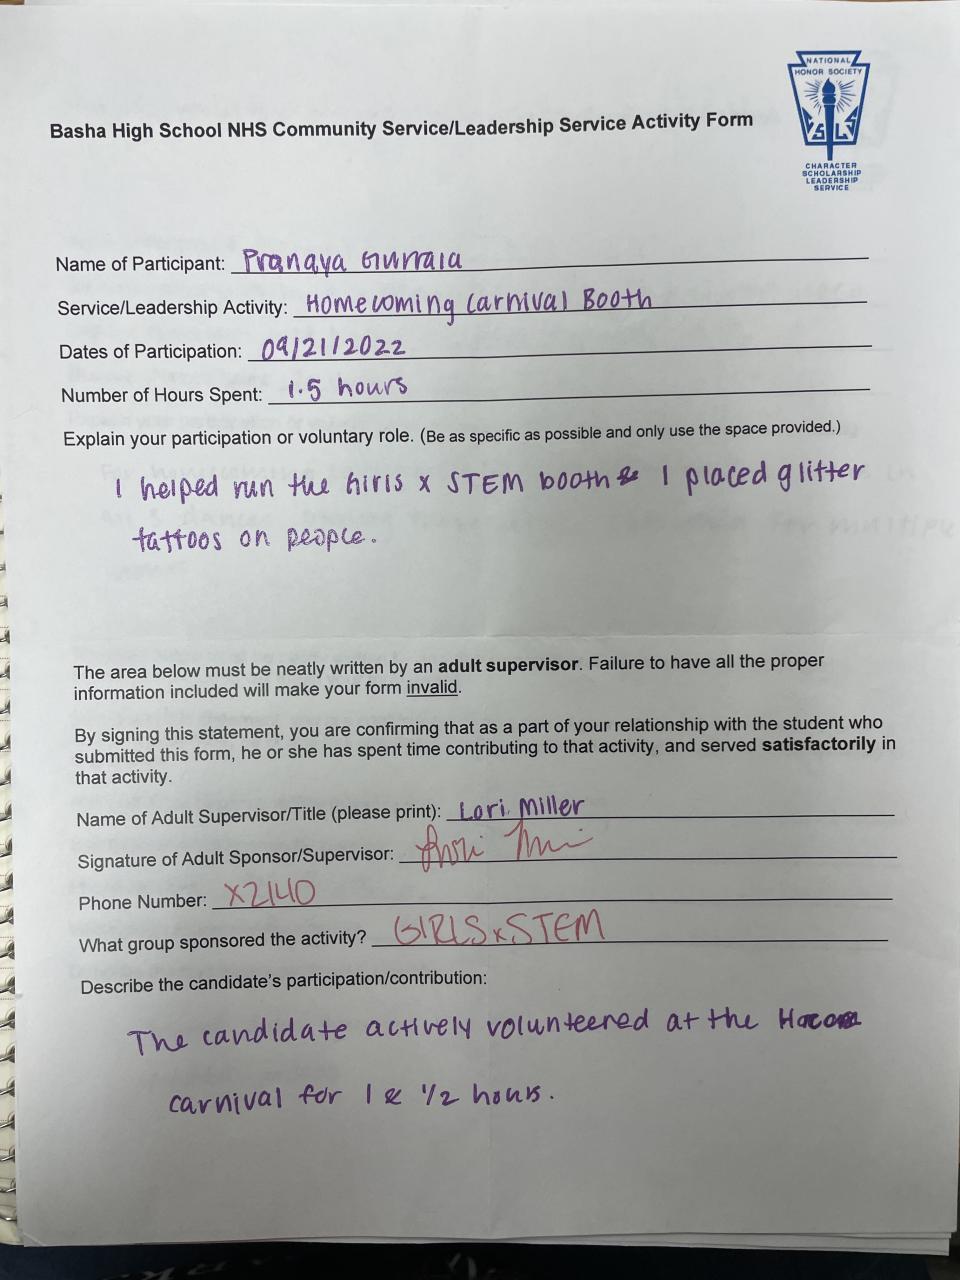 NATIONAL
HONOR SOCIETY
CHARACTER
SCHOLARSHIP
LEADERSHIP
SERVICE
Basha High School NHS Community Service/Leadership Service Activity Form
Name of Participant: Pranaya Gurrala
Service/Leadership Activity: Homecoming Carnival Booth
Dates of Participation: 09/21/2022
Number of Hours Spent: 1.5 hours
Explain your participation or voluntary role. (Be as specific as possible and only use the space provided.)
I helped run the Girls x STEM booth & I placed glitter
tattoos on people.
The area below must be neatly written by an adult supervisor. Failure to have all the proper
information included will make your form invalid.
By signing this statement, you are confirming that as a part of your relationship with the student who
submitted this form, he or she has spent time contributing to that activity, and served satisfactorily in
that activity.
Name of Adult Supervisor/Title (please print): Lori Miller
Signature of Adult Sponsor/Supervisor:
Phone Number: X2140
What group sponsored the activity? GIRLS x STEM
Describe the candidate's participation/contribution:
The candidate actively volunteered at the
carnival for 1 & 1/2 hours.